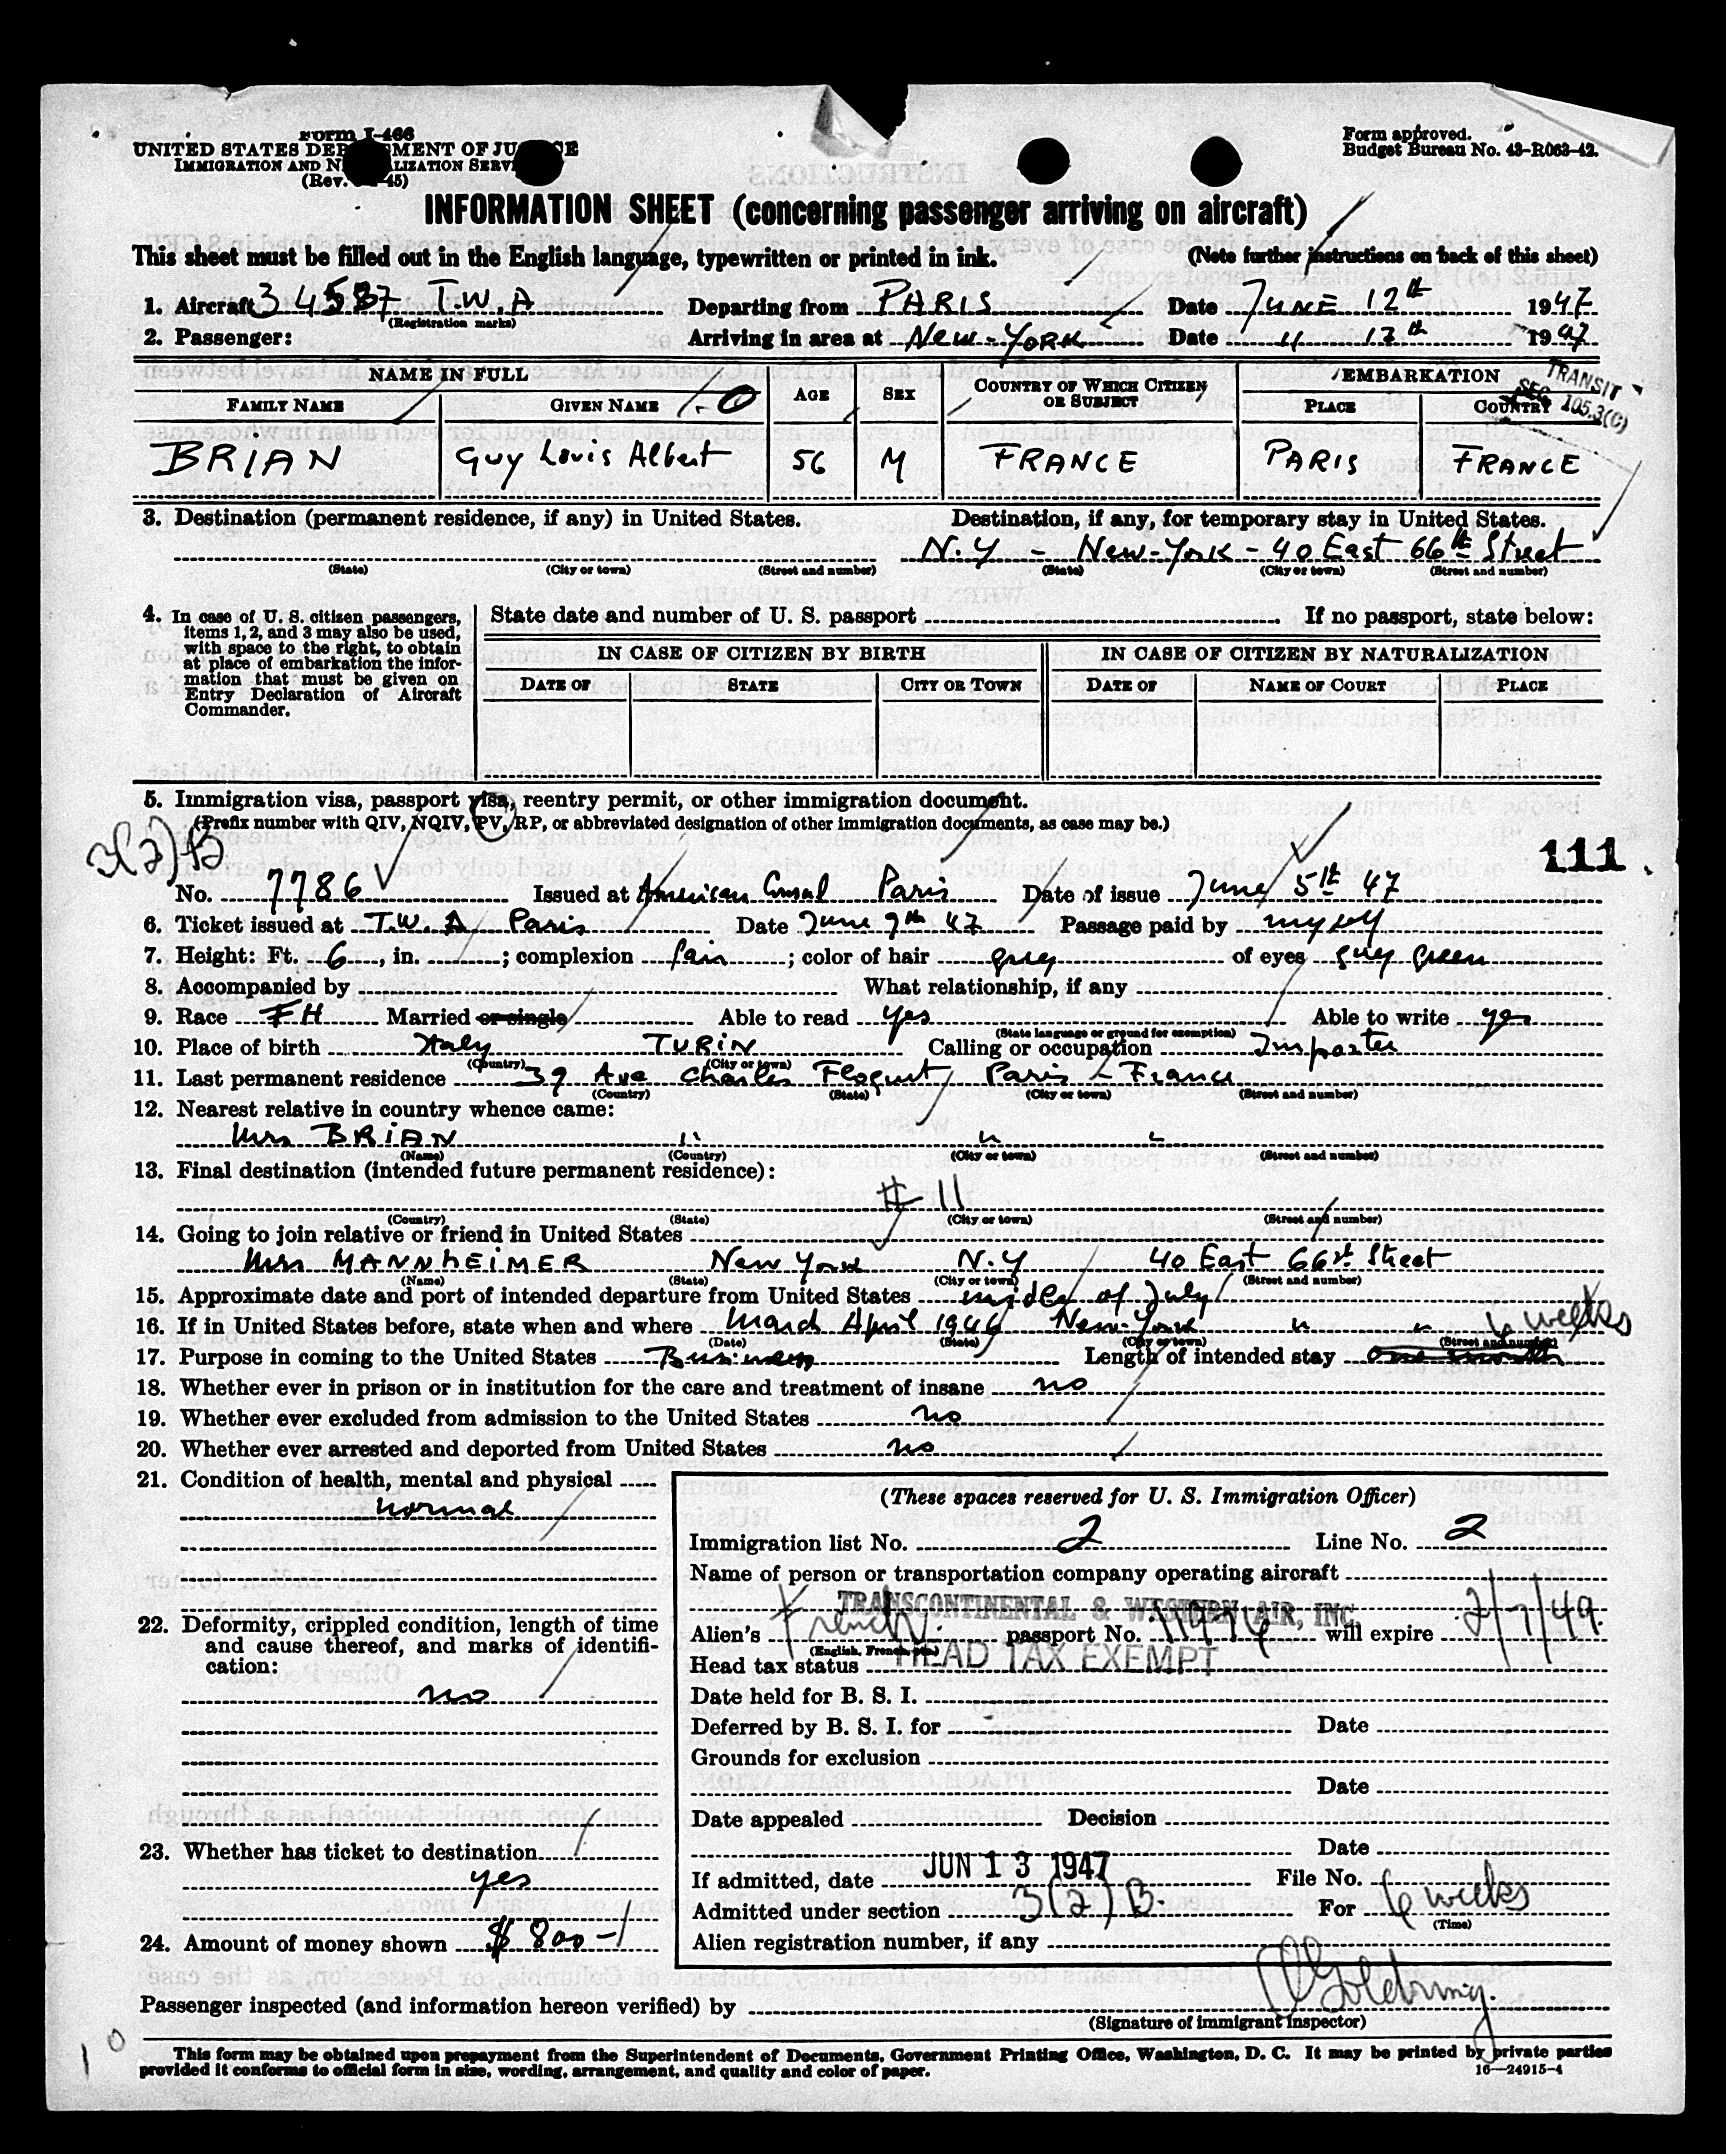 Form I-466
UNITED STATES DEP MENT OF JU CE
IMMIGRATION AND N LIZATION SERV
(Rev. 45)
Form approved.
Budget Bureau No. 43-R063-42.
INFORMATION SHEET (concerning passenger arriving on aircraft)
This sheet must be filled out in the English language, typewritten or printed in ink. (Note further instructions on back of this sheet)
1. Aircraft 34537 T.W.A Departing from PARIS Date JUNE 12th 1947
(Registration marks)
2. Passenger: Arriving in area at New-YORK Date " 13th 1947
NAME IN FULL AGE SEX COUNTRY OF WHICH CITIZEN OR SUBJECT EMBARKATION
TRANSIT
SEC 105.3(C)
FAMILY NAME GIVEN NAME PLACE COUNTRY
BRIAN Guy Louis Albert 56 M FRANCE PARIS FRANCE
3. Destination (permanent residence, if any) in United States. Destination, if any, for temporary stay in United States.
N.Y - New-York - 40 East 66th Street
(State) (City or town) (Street and number) (State) (City or town) (Street and number)
4. In case of U. S. citizen passengers, items 1, 2, and 3 may also be used, with space to the right, to obtain at place of embarkation the information that must be given on Entry Declaration of Aircraft Commander.
State date and number of U. S. passport If no passport, state below:
IN CASE OF CITIZEN BY BIRTH IN CASE OF CITIZEN BY NATURALIZATION
DATE OF STATE CITY OR TOWN DATE OF NAME OF COURT PLACE
5. Immigration visa, passport visa, reentry permit, or other immigration document.
(Prefix number with QIV, NQIV, PV, RP, or abbreviated designation of other immigration documents, as case may be.)
3(2)B
111
No. 7786 Issued at American Consul Paris Date of issue June 5th 47
6. Ticket issued at T.W.A Paris Date June 9th 47 Passage paid by myself
7. Height: Ft. 6, in. ; complexion fair ; color of hair grey of eyes grey green
8. Accompanied by What relationship, if any
9. Race FH Married or single Able to read yes Able to write yes
(State language or ground for exemption)
10. Place of birth Italy TURIN Calling or occupation Importer
(Country) (City or town)
11. Last permanent residence 39 Ave Charles Floquet Paris - France
(Country) (State) (City or town) (Street and number)
12. Nearest relative in country whence came:
Mrs BRIAN " " "
(Name) (Country) (City or town) (Street and number)
13. Final destination (intended future permanent residence):
# 11
(Country) (State) (City or town) (Street and number)
14. Going to join relative or friend in United States
Mrs MANNHEIMER New York N.Y 40 East 66th Street
(Name) (State) (City or town) (Street and number)
15. Approximate date and port of intended departure from United States midle of July
16. If in United States before, state when and where March April 1946 New-York " "
(Date) (State) (City or town) (Street and number)
6 weeks
17. Purpose in coming to the United States Business Length of intended stay one month
18. Whether ever in prison or in institution for the care and treatment of insane no
19. Whether ever excluded from admission to the United States no
20. Whether ever arrested and deported from United States no
21. Condition of health, mental and physical
normal
22. Deformity, crippled condition, length of time and cause thereof, and marks of identification:
no
23. Whether has ticket to destination
yes
24. Amount of money shown $ 800-
(These spaces reserved for U. S. Immigration Officer)
Immigration list No. 2 Line No. 2
Name of person or transportation company operating aircraft
TRANSCONTINENTAL & WESTERN AIR, INC.
Alien's French passport No. 11974 will expire 2/7/49.
(English, French, etc.)
Head tax status HEAD TAX EXEMPT
Date held for B. S. I.
Deferred by B. S. I. for Date
Grounds for exclusion
Date
Date appealed Decision
Date
If admitted, date JUN 13 1947 File No.
Admitted under section 3(2)B. For 6 weeks
(Time)
Alien registration number, if any
Passenger inspected (and information hereon verified) by
(Signature of immigrant inspector)
This form may be obtained upon prepayment from the Superintendent of Documents, Government Printing Office, Washington, D. C. It may be printed by private parties
provided it conforms to official form in size, wording, arrangement, and quality and color of paper. 16—24915-4